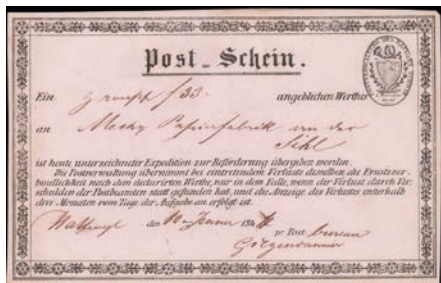 Post-Schein.
Ein angeblichen Werthes
an Papierfabrik an der
Sihl
ist heute unterzeichneter Expedition zur Beförderung übergeben worden.
Die Postverwaltung übernimmt bei eintretendem Verluste desselben die Ersatzver-
bindlichkeit nach dem declarirten Werthe, nur in dem Falle, wenn der Verlust durch Ver-
schulden der Postbeamten statt gefunden hat, und die Anzeige des Verlustes innerhalb
drei Monaten vom Tage der Aufgabe an erfolgt ist.
Wattwyl den 10 Jenner 184
pr Post bureau